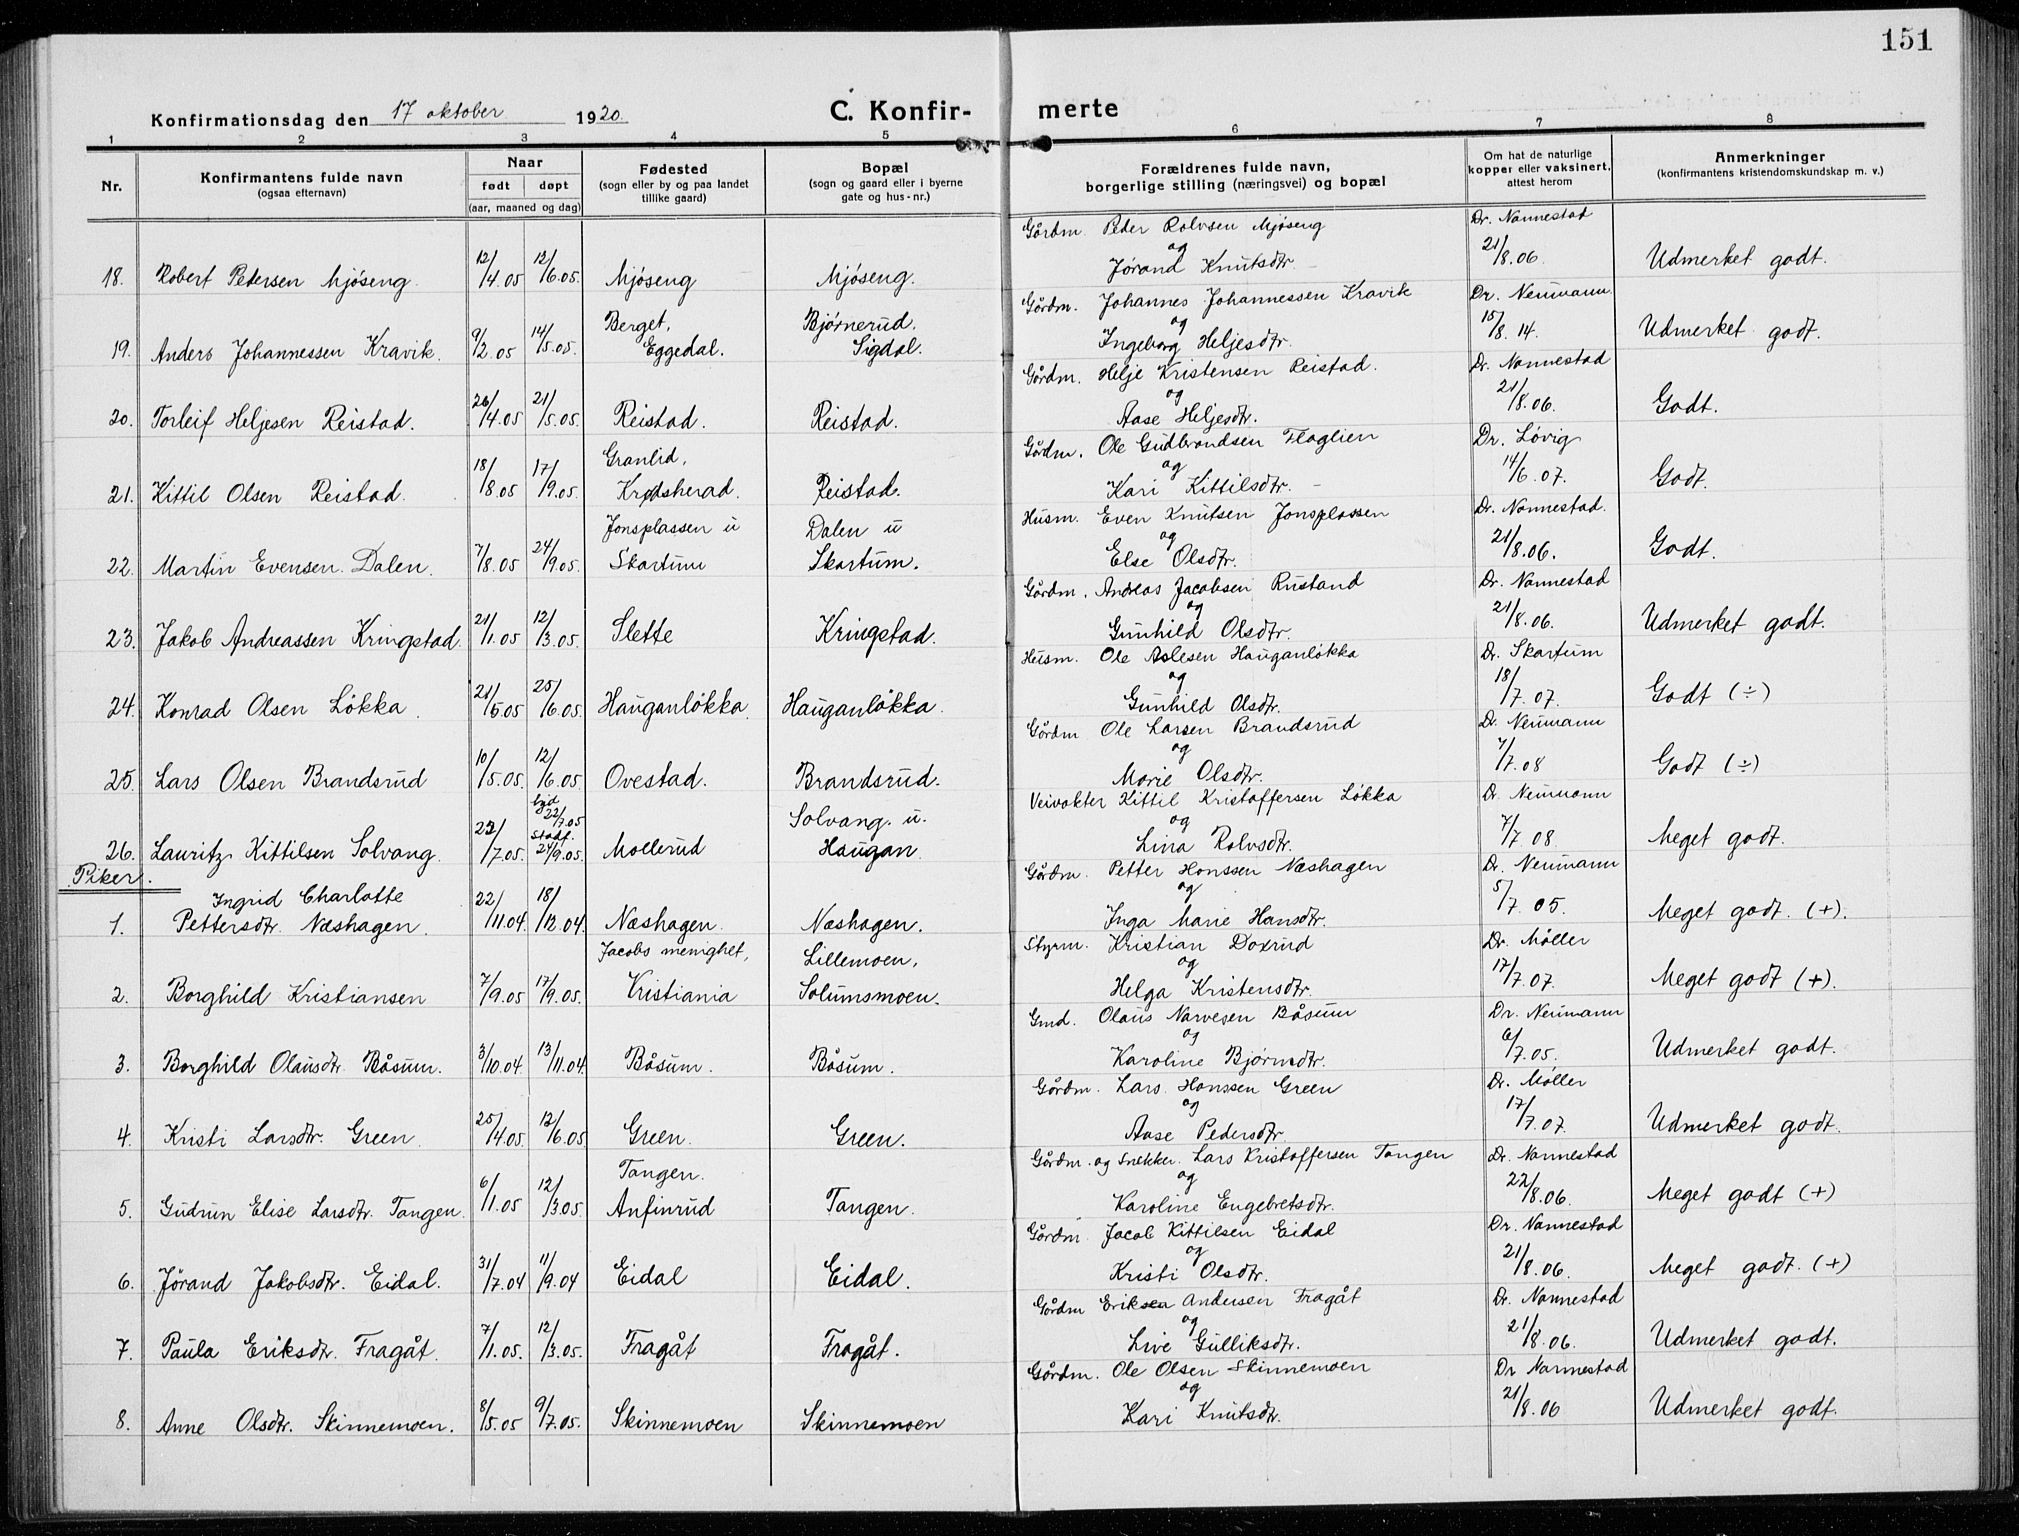 151
Konfirmationsdag den 17 oktober 1920
C. Konfirmerte
1 2 3 4 5 6 7 8
Nr.
Konfirmantens fulde navn
(ogsaa efternavn)
Naar
født døpt
(aar, maaned og dag)
Fødested
(sogn eller by og paa landet
tillike gaard)
Bopæl
(sogn og gaard eller i byerne
gate og hus-nr.)
Forældrenes fulde navn,
borgerlige stilling (næringsvei) og bopæl
Om hat de naturlige
kopper eller vaksinert,
attest herom
Anmerkninger
(konfirmantens kristendomskundskap m. v.)
Gårdm. Peder Rolvsen Mjøseng Dr. Nannestad
og
18. Robert Pedersen Mjøseng 12/4.05 12/6.05. Mjøseng Mjøseng. Jørand Knutsdtr. 21/8.06. Udmerket godt.
Gårdm. Johannes Johannessen Kravik Dr. Neumann
Berget, Bjørnerud. og
19. Anders Johannessen Kravik. 9/2.05 14/5.05. Eggedal. Sigdal. Ingeborg Heljesdtr. 15/8.14. Udmerket godt.
Gårdm. Helje Kristensen Reistad. Dr. Nannestad
og
20. Torleif Heljesen Reistad. 26/4.05 21/5.05. Reistad. Reistad. Aase Heljesdtr. 21/8.06. Godt.
Gårdm. Ole Gudbrandsen Flaglien Dr. Løvig
Granlid, og
21. Kittil Olsen Reistad. 18/8.05 17/9.05. Krødsherad. Reistad. Kari Kittilsdtr. 14/6.07. Godt.
Husm. Even Knutsen Jonsplassen Dr. Nannestad.
Jonsplassen u Dalen u og
22. Martin Evensen Dalen. 7/8.05 24/9.05. Skartum Skartum. Else Olsdtr. 21/8.06. Godt.
Gårdm. Andreas Jacobsen Rustand Dr. Nannestad
og
23. Jakob Andreassen Kringstad 21/1.05 12/3.05. Slette Kringstad. Gunhild Olsdtr. 21/8.06. Udmerket godt.
Husm. Ole Aslesen Hauganløkka Dr. Skartum
og
24. Konrad Olsen Løkka 21/5.05 25/6.05. Hauganløkka Hauganløkka. Gunhild Olsdtr. 18/7.07. Godt (÷)
Gårdm Ole Larsen Brandsrud D. Neumann
og
25. Lars Olsen Brandsrud 10/5.05. 12/6.05. Ovestad. Brandsrud. Marie Olsdtr. 7/7.08 Godt (÷)
Veivokter Kittil Kristoffersen Løkka D. Neumann
22/7.05 Solvang u. og
stadf.
26. Lauritz Kittilsen Solvang. 22/7.05. 24/9.05. Mollerud Haugan. Lina Rolvsdtr. 7/7 08. Meget godt.
Piker.
Gårdm. Petter Hanssen Næshagen Dr. Neumann
Ingrid Charlotte og
1. Pettersdtr. Næshagen. 22/11.04. 18/12.04. Næshagen. Næshagen. Inga Marie Hansdtr. 5/7.05. Meget godt. (+).
Styrm. Kristian Doxrud Dr. Møller
Jacobs menighet, Lillemoen, og
2. Borghild Kristiansen 7/9.05 17/9.05. Kristiania Solumsmoen. Helga Kristensdtr. 17/7.07. Meget godt (+).
Gmd. Olaus Narvesen Båsum Dr. Neumann
og
3. Borghild Olausdtr. Båsum. 3/10.04. 13/11.04. Båsum. Båsum. Karoline Bjørnsdtr. 6/7.05. Udmerket godt.
Gårdm. Lars Hanssen Green Dr. Møller
og
4. Kristi Larsdtr. Green. 25/4.05. 12/6.05 Green. Green. Aase Pedersdtr. 17/7.07. Udmerket godt.
Gårdm. og Snekker. Lars Kristoffersen Tangen Dr. Nannestad
Tangen. og
5. Gudrun Elise Larsdtr. Tangen. 6/1.05 12/3.05. Anfinrud Tangen. Karoline Engebretsdtr. 22/8.06. Meget godt (+)
Gårdm. Jacob Kittilsen Eidal Dr. Nannestad
og
6. Jørand Jakobsdtr. Eidal. 31/7.04 11/9.04 Eidal Eidal. Kristi Olsdtr. 21/8.06. Meget godt. (+)
Gårdm Eriksen Andersen Fragåt Dr. Nannestad
og
7. Paula Eriksdtr. Fragåt. 7/1.05. 12/3.05. Fragåt Fragåt. Live Gulliksdtr. 21/8.06. Udmerket godt.
Gårdm. Ole Olsen Skinnemoen Dr Nannestad
og
8. Anne Olsdtr. Skinnemoen. 8/5.05 9/7.05. Skinnemoen Skinnemoen Kari Knutsdtr. 21/8.06 Udmerket godt.